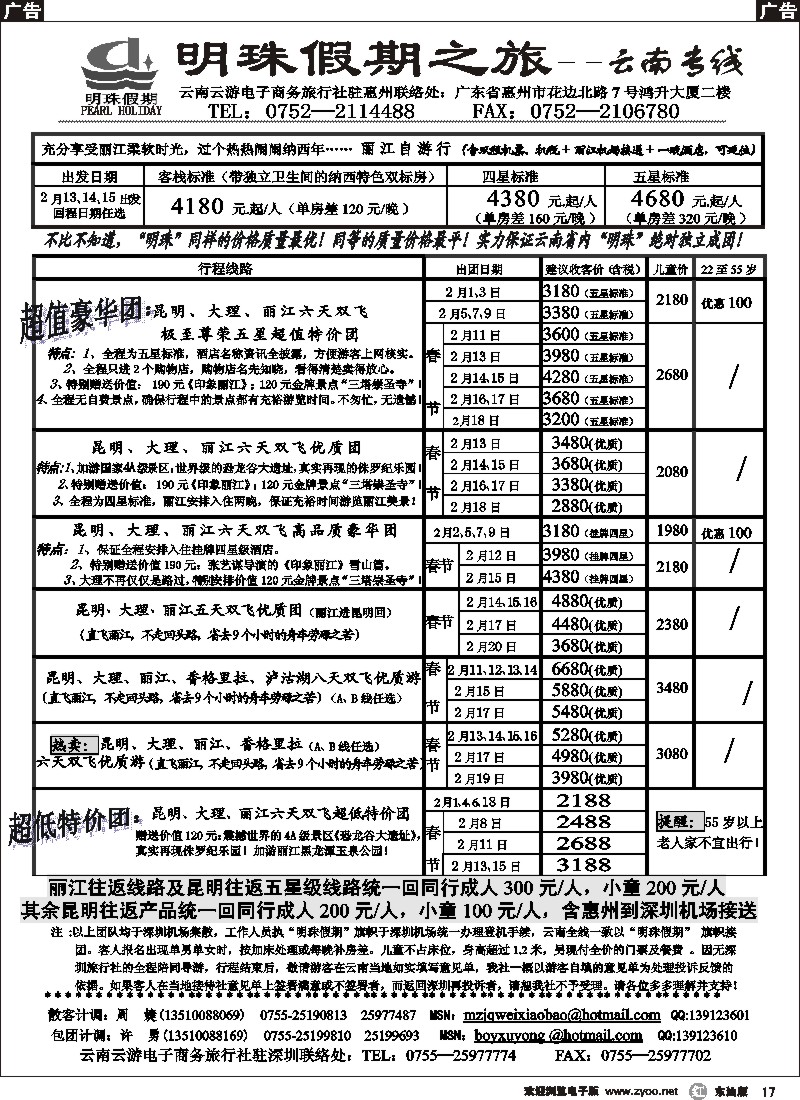 广告
广告
明珠假期
PEARL HOLIDAY
明珠假期之旅--云南专线
云南云游电子商务旅行社驻惠州联络处：广东省惠州市花边北路7号鸿升大厦二楼
TEL：0752—2114488 FAX：0752—2106780
充分享受丽江柔软时光，过个热热闹闹纳西年…… 丽江自游行（含双程机票、机税＋丽江机场接送＋一晚酒店，可延住）
出发日期 客栈标准（带独立卫生间的纳西特色双标房） 四星标准 五星标准
2月13、14、15出发 回程日期任选 4180元.起/人（单房差120元/晚） 4380元.起/人（单房差160元/晚） 4680元.起/人（单房差320元/晚）
不比不知道，“明珠”同样的价格质量最优！同等的质量价格最平！实力保证云南省内“明珠”绝对独立成团！
行程线路 出团日期 建议收客价（含税） 儿童价 22至55岁
超值豪华团：昆明、大理、丽江六天双飞
极至尊荣五星超值特价团
特点：1、全程为五星标准，酒店名称资讯全披露，方便游客上网核实。
2、全程只进2个购物店，购物店名先知晓，看得清楚卖得放心。
3、特别赠送价值：190元《印象丽江》；120元金牌景点“三塔崇圣寺”！
4、全程无自费景点，确保行程中的景点都有充裕游览时间。不匆忙，无遗憾！
2月1、3日 3180（五星标准） 2180 优惠100
2月5、7、9日 3380（五星标准）
春节
2月11日 3600（五星标准） 2680 /
2月13日 3980（五星标准）
2月14、15日 4280（五星标准）
2月16、17日 3680（五星标准）
2月18日 3200（五星标准）
昆明、大理、丽江六天双飞优质团
特点：1、加游国家4A级景区：世界级的恐龙谷大遗址，真实再现的侏罗纪乐园！
2、特别赠送价值：190元《印象丽江》；120元金牌景点“三塔崇圣寺”！
3、全程为四星标准，丽江安排入住两晚，保证充裕时间游览丽江美景！
春节
2月13日 3480(优质) 2080 /
2月14、15日 3680(优质)
2月16、17日 3380(优质)
2月18日 2880(优质)
昆明、大理、丽江六天双飞高品质豪华团
特点：1、保证全程安排入住挂牌四星级酒店。
2、特别赠送价值190元：张艺谋导演的《印象丽江》雪山篇。
3、大理不再仅仅是路过，特别安排价值120元金牌景点“三塔崇圣寺”！
2月2、5、7、9日 3180（挂牌四星） 1980 优惠100
春节
2月12日 3980（挂牌四星） 2180 /
2月15日 4380（挂牌四星）
昆明、大理、丽江五天双飞优质团（丽江进昆明回）
（直飞丽江，不走回头路，省去9个小时的舟车劳碌之苦）
春节
2月14、15、16 4880(优质) 2380 /
2月17日 4480(优质)
2月20日 3680(优质)
昆明、大理、丽江、香格里拉、泸沽湖八天双飞优质游
（直飞丽江，不走回头路，省去9个小时的舟车劳碌之苦）（A、B线任选）
春节
2月11、12、13、14 6680(优质) 3480 /
2月15日 5880(优质)
2月17日 5480(优质)
热卖：昆明、大理、丽江、香格里拉（A、B线任选）
六天双飞优质游（直飞丽江，不走回头路，省去9个小时的舟车劳碌之苦）
春节
2月13、14、15、16 5280(优质) 3080 /
2月17日 4980(优质)
2月19日 3980(优质)
超低特价团：昆明、大理、丽江六天双飞超低特价团
赠送价值120元：震撼世界的4A级景区《恐龙谷大遗址》，
真实再现侏罗纪乐园！加游丽江黑龙潭玉泉公园！
2月1、4、6、18日 2188
春节
2月8日 2488
2月11日 2688
2月13、15日 3188
提醒：55岁以上
老人家不宜出行！
丽江往返线路及昆明往返五星级线路统一回同行成人300元/人，小童200元/人
其余昆明往返产品统一回同行成人200元/人，小童100元/人，含惠州到深圳机场接送
注：以上团队均于深圳机场集散，工作人员执“明珠假期”旗帜于深圳机场统一办理登机手续，云南全线一致以“明珠假期” 旗帜接
团。客人报名出现单男单女时，按加床处理或每晚补房差。儿童不占床位，身高超过1.2米，另现付全价的门票及餐费 。因无深
圳旅行社的全程陪同导游，行程结束后，敬请游客在云南当地如实填写意见单，我社一概以游客自填的意见单为处理投诉反馈的
依据。如果客人在当地接待社意见单上签署满意或不签署者，而返回深圳再投诉者，请恕我社不予受理。请各位多多理解并支持！
散客计调：周 (13510088069) 0755-25190813 25977487 MSN：mzjqweixiaobao@hotmail.com QQ:139123601
包团计调：许 勇(13510088169) 0755-25199810 25199693 MSN：boyxuyong @hotmail.com QQ:139123610
云南云游电子商务旅行社驻深圳联络处：TEL：0755—25977774 FAX：0755—25977702
欢迎浏览电子版 www.zyoo.net 东讯版 17